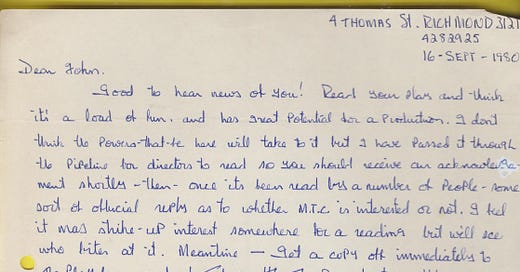 4 THOMAS ST. RICHMOND 3121
4282925
16-SEPT-1980
Dear John.
Good to hear news of you! Read your play and think
it's a load of fun. and has great Potential for a Production. I don't
think the Powers-that-be here will take to it but I have Passed it through
the Pipeline for directors to read so you should receive an acknowledge-
ment shortly - then - once its been read by a number of People - some
sort of official reply as to whether M.T.C is interested or not. I feel
it may strike-up interest somewhere for a reading but will see
who bites at it. Meantime — Get a copy off immediately to